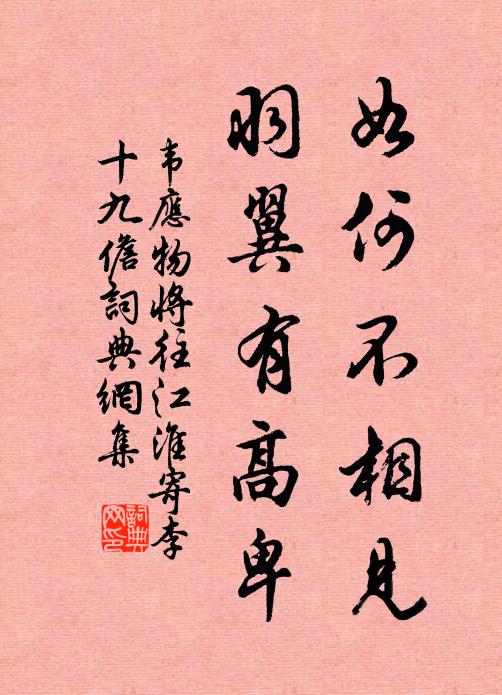 如何不相見
羽翼有高卑
韦應物將往江淮寄李
十九儋詞典網集
詞典
网印